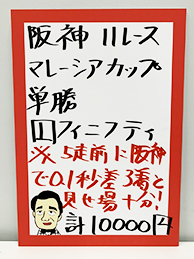 阪神 11レース
マレーシアカップ
単勝
1フィニフティ
※ 5走前に阪神
で0.1秒差3着と
見せ場十分!
計10000円